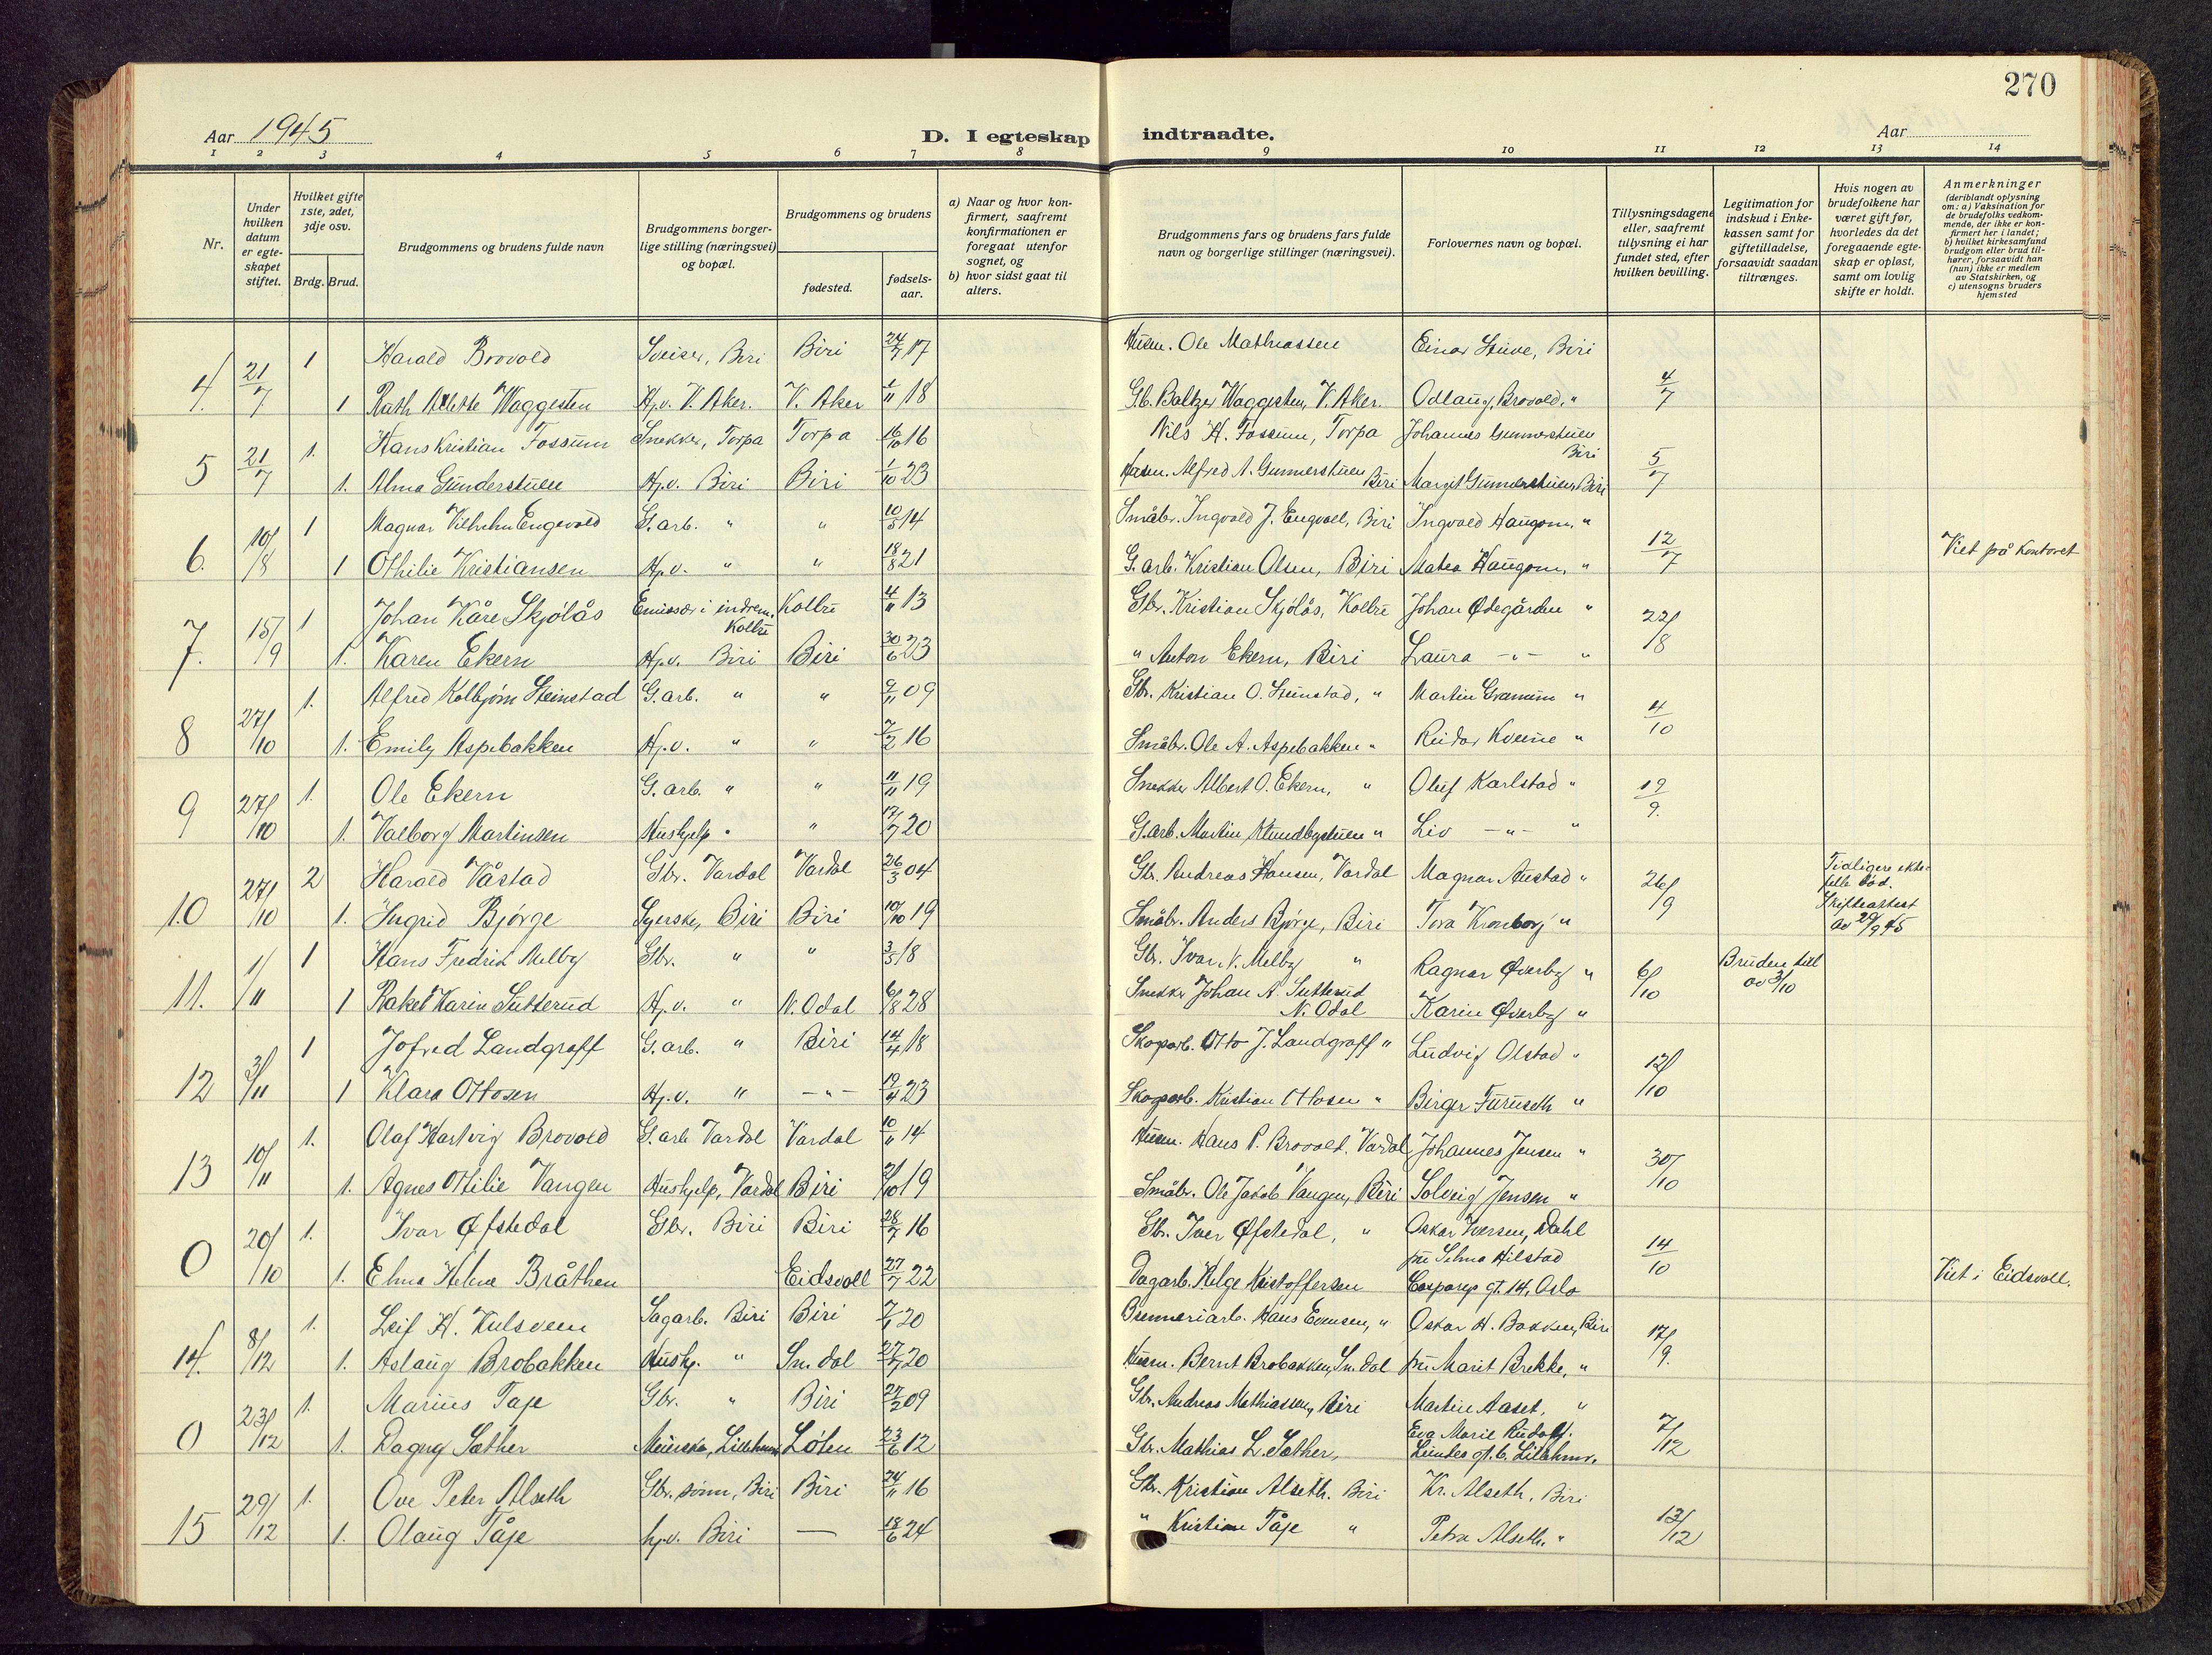 270
Aar 1945
D. I egteskap indtraadte.
Aar
1 2 3 4 5 6 7 8 9 10 11 12 13 14
Nr.
Under hvilken datum er egte-skapet stiftet.
Hvilket gifte 1ste, 2det, 3dje osv.
Brdg. Brud.
Brudgommens og brudens fulde navn
Brudgommens borger-lige stilling (næringsvei) og bopæl.
Brudgommens og brudens
fødested.
fødsels-aar.
a) Naar og hvor kon-firmert, saafremt konfirmationen er foregaat utenfor sognet, og
b) hvor sidst gaat til alters.
Brudgommens fars og brudens fars fulde navn og borgerlige stillinger (næringsvei).
Forlovernes navn og bopæl.
Tillysningsdagene eller, saafremt tillysning ei har fundet sted, efter hvilken bevilling.
Legitimation for indskud i Enke-kassen samt for giftetilladelse, forsaavidt saadan tiltrænges.
Hvis nogen av brudefolkene har været gift før, hvorledes da det foregaaende egte-skap er opløst, samt om lovlig skifte er holdt.
Anmerkninger (deriblandt oplysning om: a) Vaksination for de brudefolks vedkom-mende, der ikke er kon-firmert her i landet; b) hvilket kirkesamfund brudgom eller brud til-hører, forsaavidt han (hun) ikke er medlem av Statskirken, og c) utensogns bruders hjemsted
4. 21/7 1 Harald Brovold Sveiser, Biri Biri 24/7 17 Husm. Ole Mathiassen Einar Stuve, Biri 4/7
1 Ruth Alette Waggesten Hj.v. V. Aker. V. Aker 1/11 18 Gb. Baltzer Waggesten, V. Aker. Odlaug Brovold, "
5 21/7 1. Hans Kristian Fossum Snekker, Torpa Torpa 16/10 16 Nils H. Fossum, Torpa Johannes Gunnerstuen Biri 5/7
1. Alma Gunderstuen Hj.v. Biri Biri 1/10 23 Husm. Alfred A. Gunnerstuen Biri Margit Gunnerstuen, Biri
6. 10/8 1 Magnar Vilhelm Engevold G.arb. " " 10/8 14 Småbr. Ingvold J. Engvoll, Biri Ingvold Haugom, " 12/7 Viet på kontoret
1 Othilie Kristiansen Hj.v. " " 18/8 21 G. arb. Kristian Olsen, Biri Matea Haugom, "
7. 15/9 1 Johan Kåre Skjölås Emissær i indrem. Kolbu Kolbu 4/11 13 Gbr. Kristian Skjölås, Kolbu Johan Ødegården " 22/8
1. Karen Ekern Hj.v. Biri Biri 30/6 23 " Anton Ekern, Biri Laura - " - "
8 27/10 1. Alfred Kolbjørn Steinstad G.arb. " " 9/11 09 Gbr. Kristian O. Steinstad, " Martin Granum " 4/10
1. Emily Aspebakken Hj.v. " " 7/2 16 Småbr. Ole A. Aspebakken " Reidar Kverne "
9 27/10 1. Ole Ekern G. arb. " " 11/11 19 Snekker Albert O. Ekern, " Oluf Karlstad " 19/9.
1. Valborg Martinsen Hushjelp " " 17/7 20 G.arb. Martin Klundbystuen " Liv - " - "
10 27/10 2 Harald Våstad Gbr. Vardal Vardal 26/3 04 Gbr. Andreas Hansen, Vardal Magnar Austad " 26/9 Tidligere ekte-felle död. Skifteattest av 29/9 45
1. Ingrid Bjørge Syerske, Biri Biri 10/10 19 Småbr. Anders Bjørge, Biri Tora Kronborg "
11. 1/11 1 Hans Fredrik Melby Gbr. " " 3/5 18 Gbr. Ivar N. Melby " Ragnar Øverby " 6/10 Bruden till av 3/10
1 Rakel Karin Sutterud Hj.v. " N. Odal 6/8 28 Snekker Johan A. Sutterud N. Odal Karin Øverby "
12 3/11 1 Jofred Landgraff G. arb. " Biri 14/4 18 Skogarb. Otto J. Landgraff " Ludvig Olstad " 12/10
1 Klara Ottosen Hj.v. " - " - 19/4 23 Skogarb. Kristian Ottosen " Birger Furuseth "
13 10/11 1. Olaf Hartvig Brovold G. arb Vardal Vardal 10/11 14 Husm. Hans P. Brovold, Vardal Johannes Jensen " 30/10
1. Agnes Othilie Vangen Hushjelp, Vardal Biri 2/10 19 Småbr. Ole Jakob Vangen, Biri Solveig Jensen "
0 20/10 1. Ivar Øfstedal Gbr. Biri Biri 28/7 16 Gbr. Iver Øfstedal, " Oskar Iversen, Dahl 14/10
1. Elna Helene Bråthen Eidsvoll 27/7 22 Dagarb. Helge Kristoffersen fru Selma Hilstad Casparys gt. 14, Oslo Viet i Eidsvoll.
14. 8/12 1. Leif H. Hulsveen Sagarb. Biri Biri 7/1 20 Brenneriarb. Hans Evensen, " Oskar H. Bakken, Biri 17/9.
1. Aslaug Brobakken Hushj. " Sn.dal 27/7 20 Husm. Bernt Brobakken, Sn.dal fru Marit Brekke, "
0 23/12 1. Marius Taje Gbr. " Biri 27/2 09 Gbr. Andreas Mathiassen, Biri Martin Aaset, " 7/12
1. Dagny Sæther Lillehmr. Løten 23/6 12 Gbr. Mathias L. Sæther, Eva Marie Rudolf. Lundes gt. 6. Lillehmr.
15 29/12 1. Ove Peter Alseth Gbr. sønn, Biri Biri 24/11 16 Gbr. Kristian Alseth. Biri Kr. Alseth, Biri 13/12
1. Olaug Tåje hj.v. Biri — 18/6 24 " Kristian Tåje " Petra Alseth, "